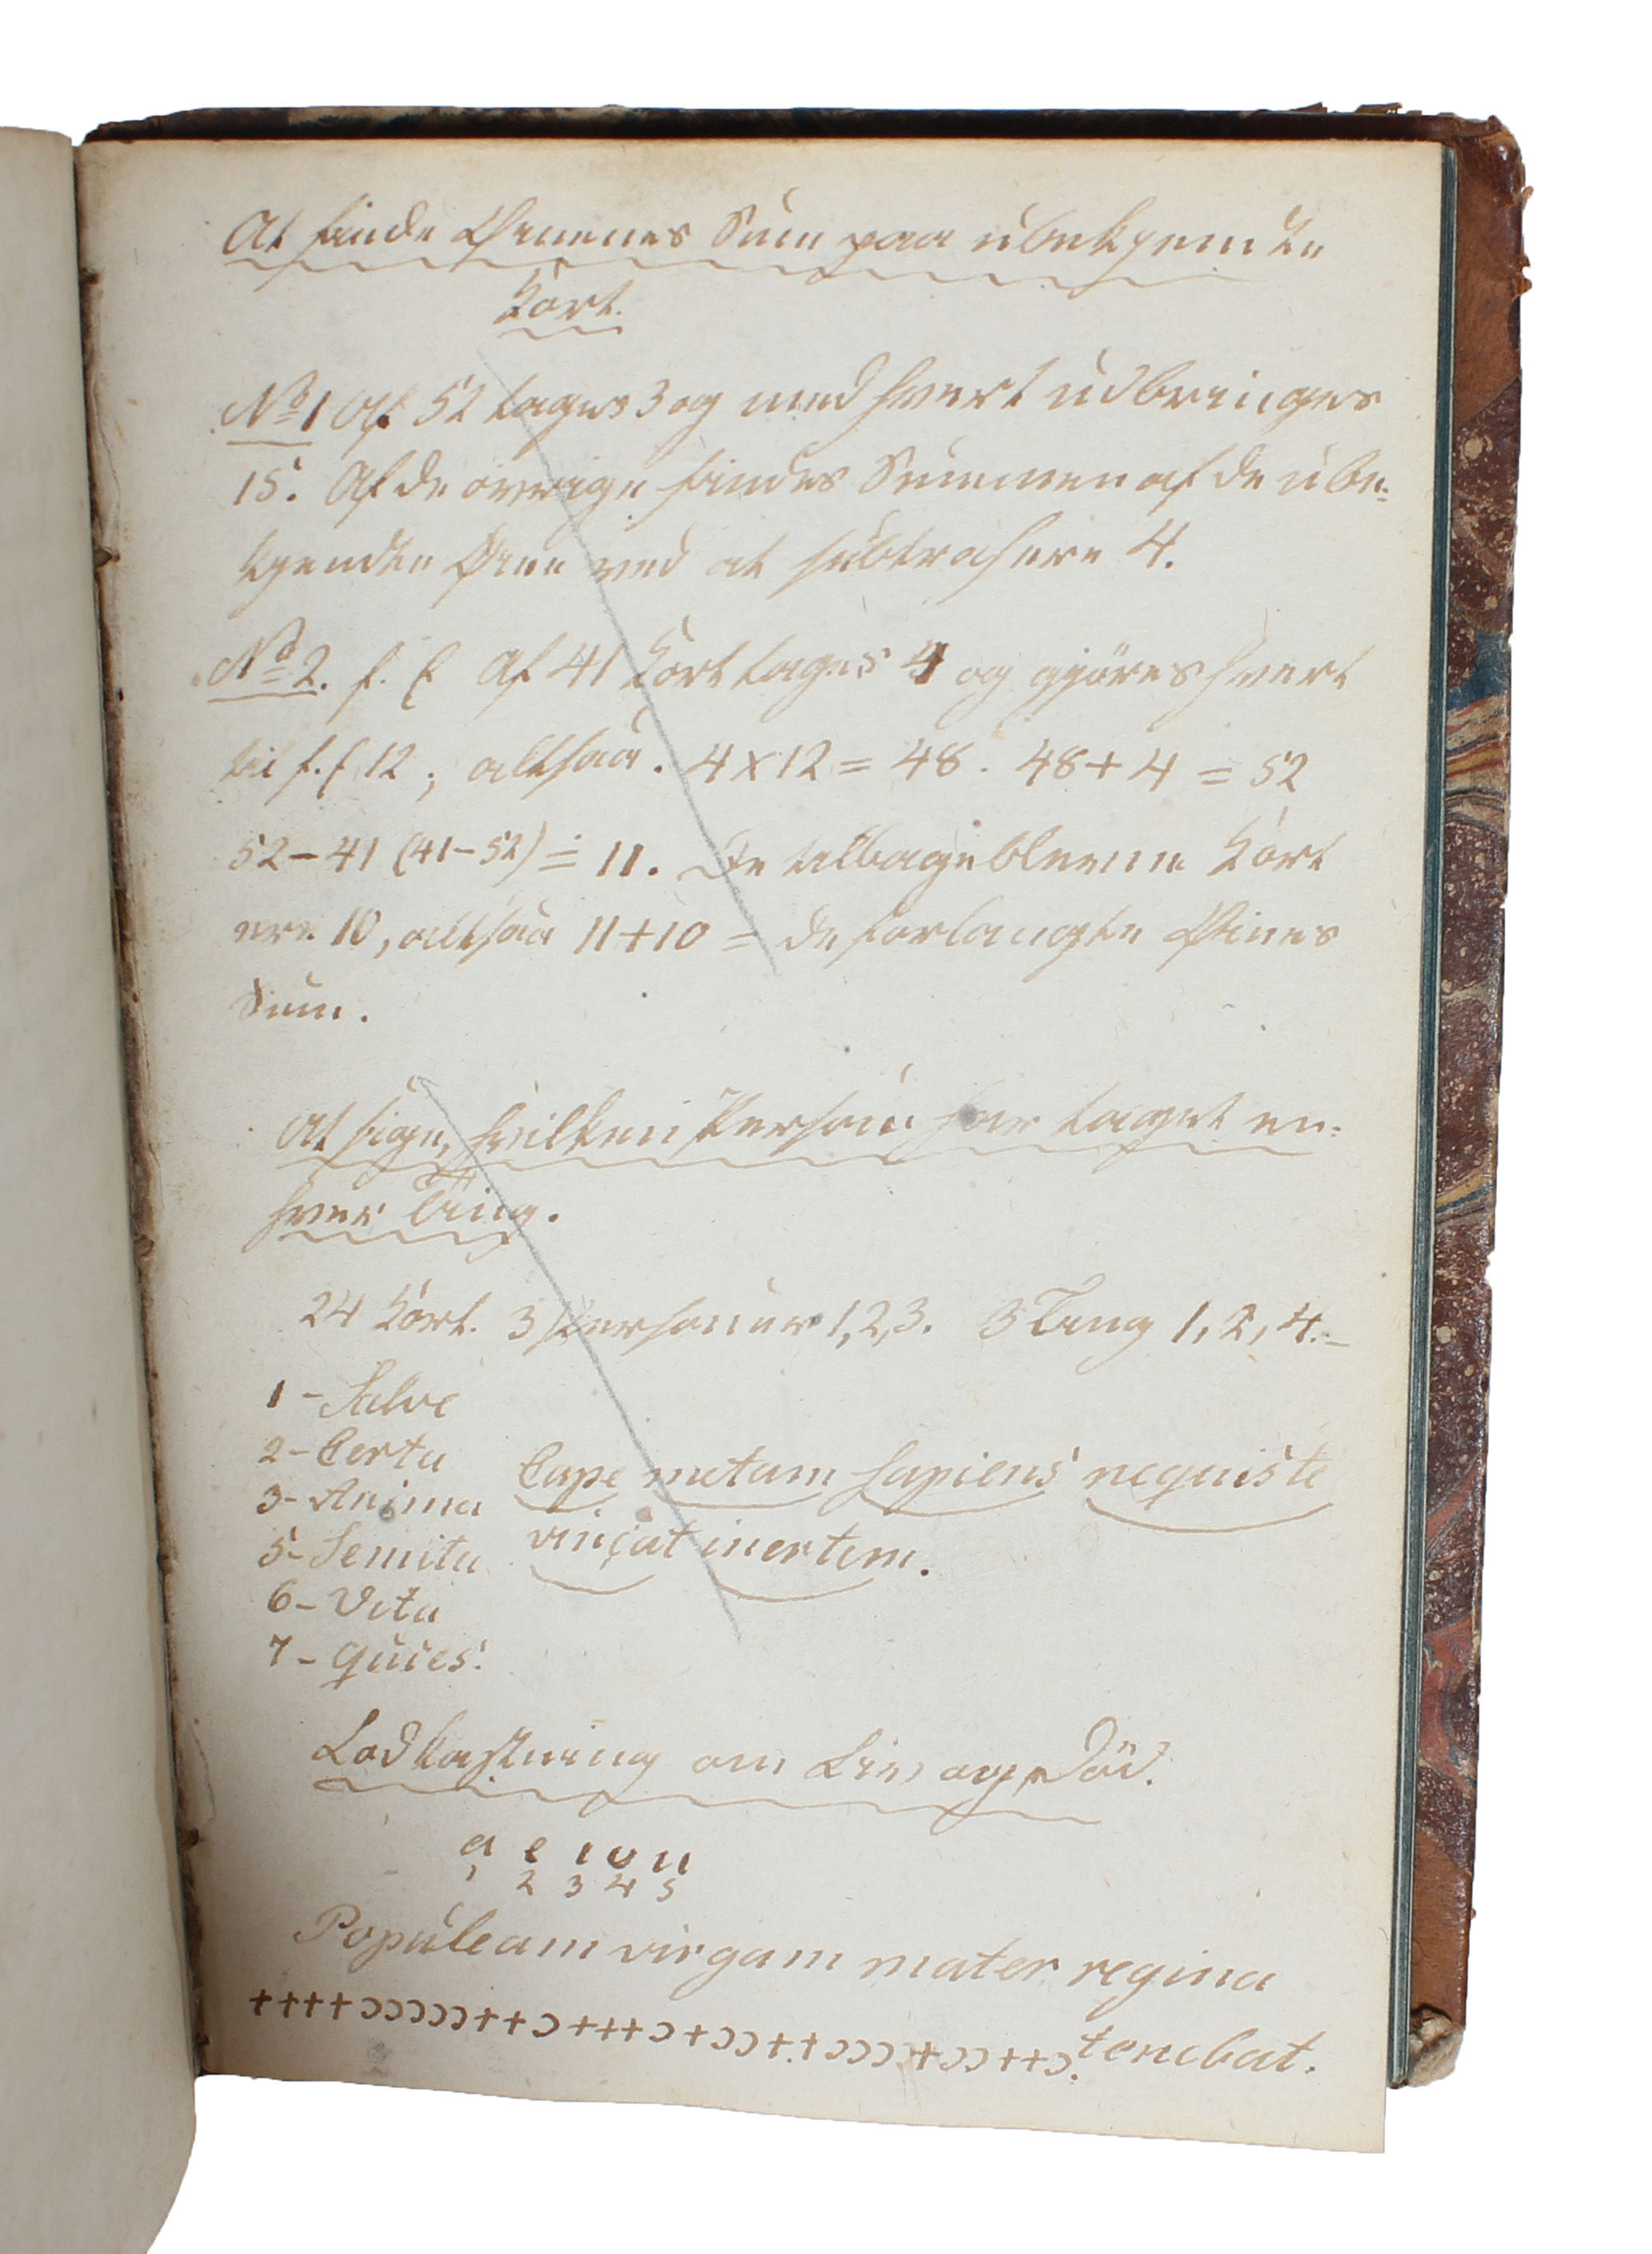 At finde Øinenes Sum paa ubekjendte
Kort.
No 1 Af 52 tages 3 og med hvert udbringes
15. Af de øvrige findes Summen af de ube-
kjendte Øine ved at subtrahere 4.
No 2. f. E Af 41 Kort tages 4 og gjøres hvert
til f. E 12; altsaa. 4 x 12 = 48. 48 + 4 = 52
52 - 41 (41 - 52) = 11. De tilbageblevne Kort
ere 10, altsaa 11 + 10 = de forlangte Øines
Sum.
At sige, hvilken Person har taget en-
hver Ting.
24 Kort. 3 Personer 1, 2, 3. 3 Ting 1, 2, 4.-
1 - Salve
2 - Certa
3 - Anima
5 - Semita
6 - Vita
7 - Quies.
Cape metam sapiens nequiste
vincat inertem.
Lodkastning om Liv og Død.
a e i o u
1 2 3 4 5
Populeam virgam mater regina
tenebat.
++++ɔɔɔɔɔ++ɔ+++ɔ+ɔɔ++ɔɔɔ+ɔɔ++ɔ.